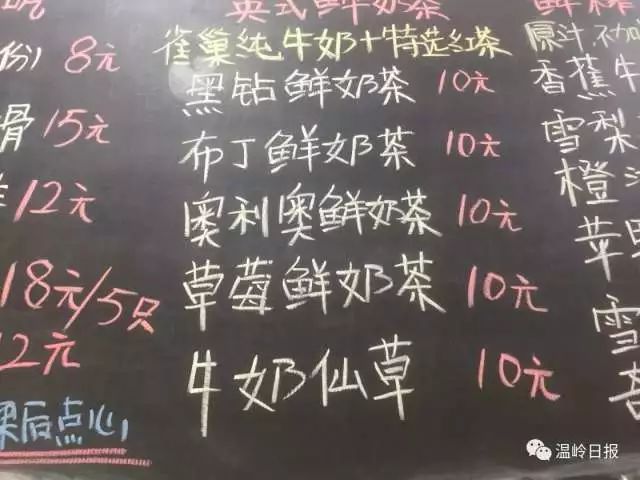 英式鲜奶茶
雀巢纯牛奶+特选红茶
黑钻鲜奶茶 10元
布丁鲜奶茶 10元
奥利奥鲜奶茶 10元
草莓鲜奶茶 10元
牛奶仙草 10元
份) 8元
骨 15元
12元
18元/5只
12元
课后点心
鲜榨
原汁 不加
香蕉牛
雪梨
橙
苹
雪
温岭日报